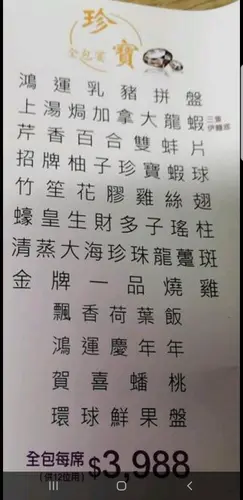 珍寶
全包宴
鴻運乳豬拼盤
上湯焗加拿大龍蝦
芹香百合雙蚌片
招牌柚子珍寶蝦球
竹笙花膠雞絲翅
蠔皇生財多子瑤柱
清蒸大海珍珠龍躉斑
金牌一品燒雞
飄香荷葉飯
鴻運慶年年
賀喜蟠桃
環球鮮果盤
全包每席 $3,988
(供12位用)